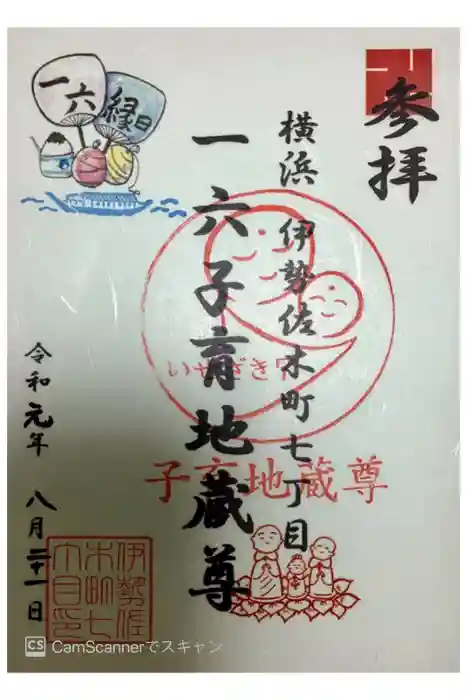 参拝
横浜 伊勢佐木町七丁目
一六子育地蔵尊
令和元年 八月二十一日
一六
縁日
子育地蔵尊
伊勢佐
木町七
CS CamScannerでスキャン